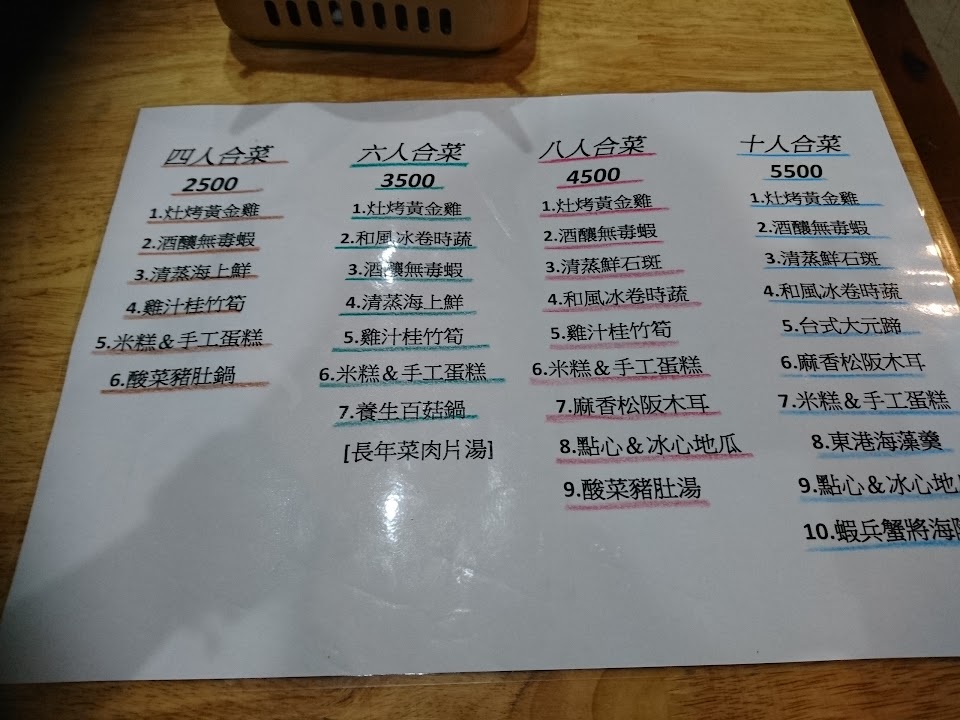 四人合菜
2500
1.灶烤黃金雞
2.酒釀無毒蝦
3.清蒸海上鮮
4.雞汁桂竹筍
5.米糕&手工蛋糕
6.酸菜豬肚鍋
六人合菜
3500
1.灶烤黃金雞
2.和風冰卷時蔬
3.酒釀無毒蝦
4.清蒸海上鮮
5.雞汁桂竹筍
6.米糕&手工蛋糕
7.養生百菇鍋
[長年菜肉片湯]
八人合菜
4500
1.灶烤黃金雞
2.酒釀無毒蝦
3.清蒸鮮石斑
4.和風冰卷時蔬
5.雞汁桂竹筍
6.米糕&手工蛋糕
7.麻香松阪木耳
8.點心&冰心地瓜
9.酸菜豬肚湯
十人合菜
5500
1.灶烤黃金雞
2.酒釀無毒蝦
3.清蒸鮮石斑
4.和風冰卷時蔬
5.台式大元蹄
6.麻香松阪木耳
7.米糕&手工蛋糕
8.東港海藻羹
9.點心&冰心地
10.蝦兵蟹將海